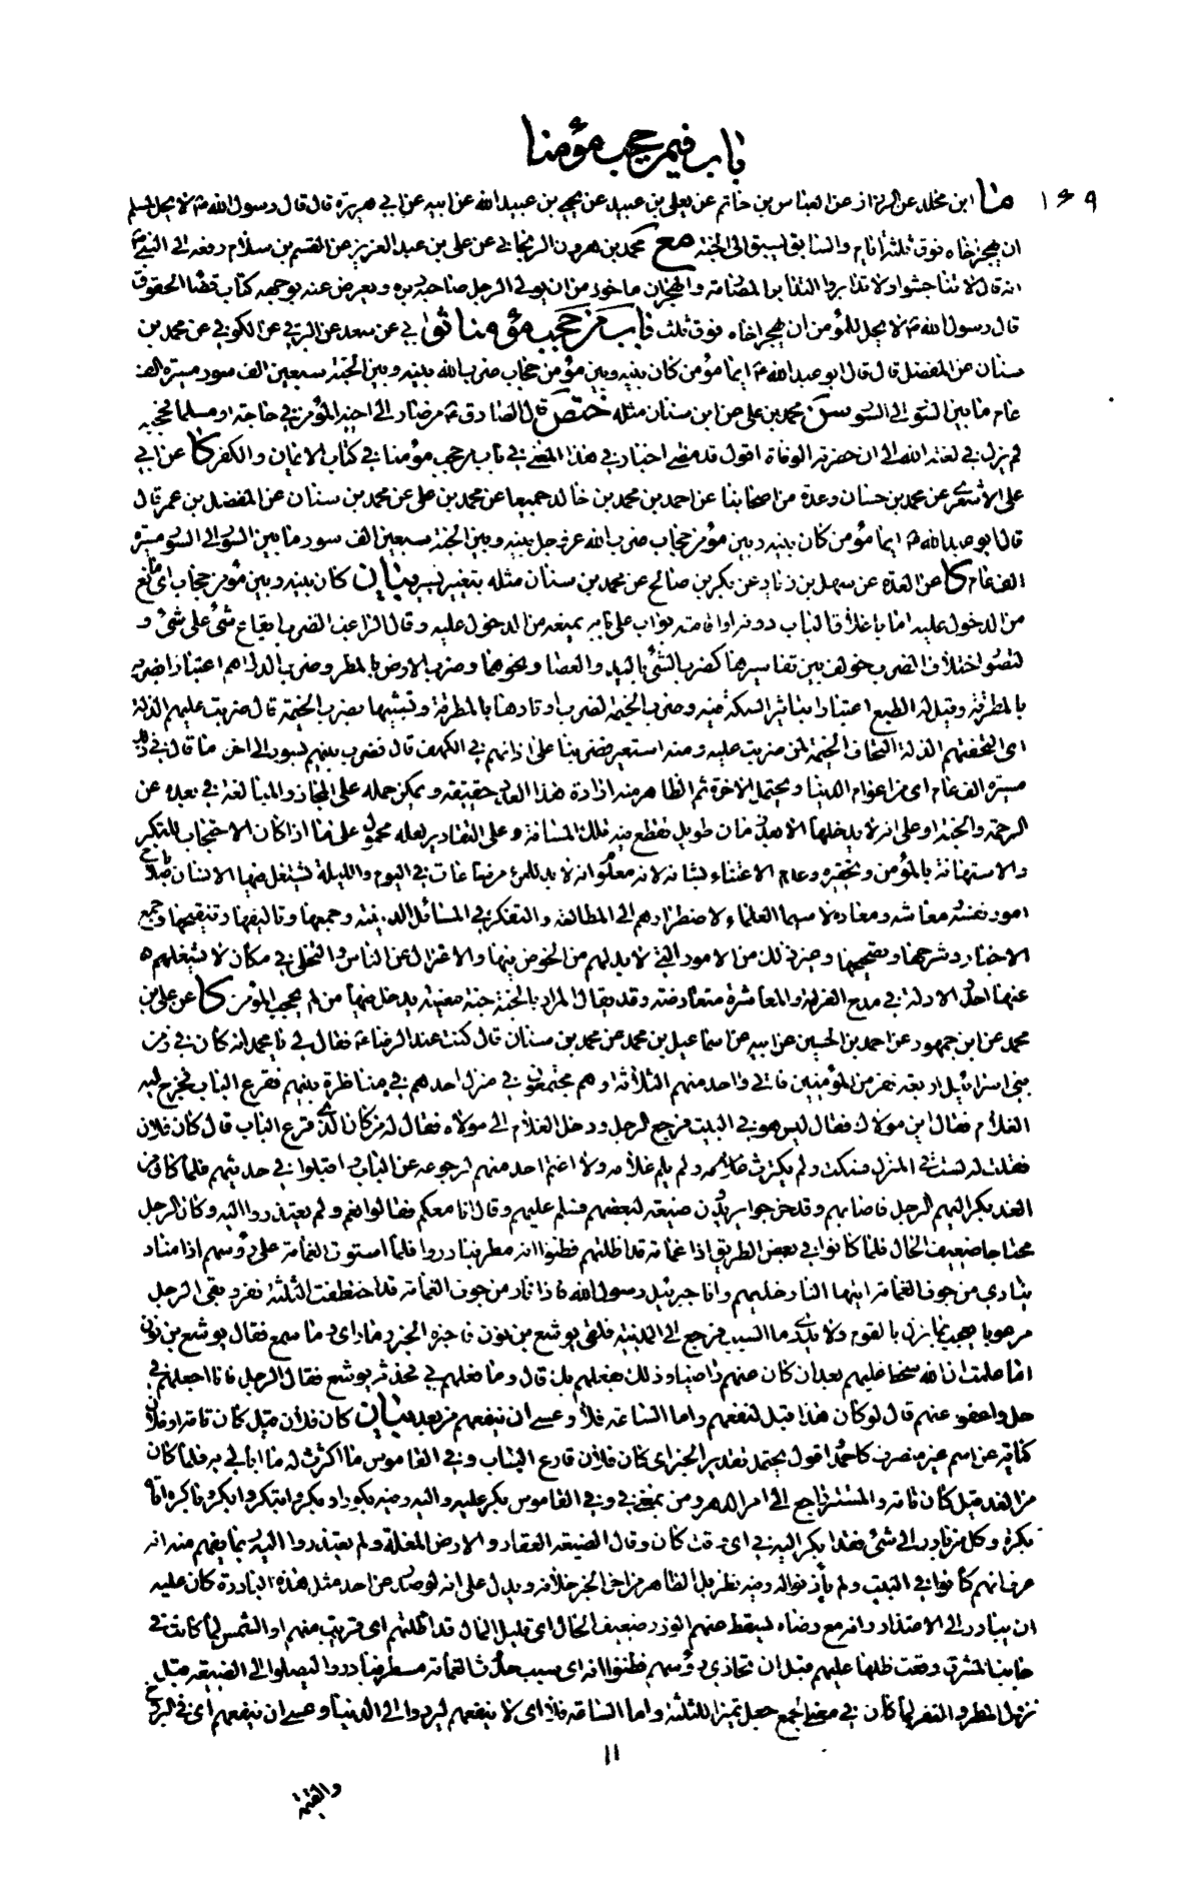 باب فيمن حجب مؤمنا
١٤٩
ما ابن مخلد عن الرزاز عن العباس بن حاتم عن يعلى بن عبيد عن يحيى بن عبيد الله عن ابيه عن ابي هريرة قال قال رسول الله ص لا يحل لمسلم
ان يهجر اخاه فوق ثلثة ايام والسابق يسبق الى الجنة مع محمد بن هرون الزنجاني عن علي بن عبد العزيز عن القسم بن سلام رفعه الى النبي ص
انه قال لا تناجشوا ولا تدابروا التدابر المصارمة والهجران ماخوذ من ان يولي الرجل صاحبه دبره ويعرض عنه بوجهه كتاب قضاء الحقوق
قال رسول الله ص لا يحل للمؤمن ان يهجر اخاه فوق ثلث باب من حجب مؤمنا ثو ابي عن سعد عن البرقي عن الكوفي عن محمد بن
سنان عن المفضل قال قال ابو عبد الله ع ايما مؤمن كان بينه وبين مؤمن حجاب ضرب الله بينه وبين الجنة سبعين الف سور مسيرة الف
عام ما بين السور الى السور سن محمد بن علي عن ابن سنان مثله ختص قال الصادق ع من صار الى اخيه المؤمن في حاجة او مسلما فحجبه
لم يزل في لعنة الله الى ان حضرته الوفاة اقول قد مضى اخبار في هذا المعنى في باب من حجب مؤمنا في كتاب الايمان والكفر كا عن ابي
علي الاشعري عن محمد بن حسان وعدة من اصحابنا عن احمد بن محمد بن خالد جميعا عن محمد بن علي عن محمد بن سنان عن المفضل بن عمر قال
قال ابو عبد الله ع ايما مؤمن كان بينه وبين مؤمن حجاب ضرب الله عز وجل بينه وبين الجنة سبعين الف سور ما بين السور الى السور مسيرة
الف عام كا عن العدة عن سهل بن زياد عن بكر بن صالح عن محمد بن سنان مثله بتغيير يسير بيان كان بينه وبين مؤمن حجاب اي مانع
من الدخول عليه اما باغلاق الباب دونه او اقامة بواب على بابه يمنعه من الدخول عليه وقال الراغب الضرب ايقاع شئ على شئ و
لتصور اختلاف الضرب خولف بين تفاسيرها كضرب الشئ باليد والعصا ونحوهما وضرب الارض بالمطر وضرب الدراهم اعتبارا بضربه
بالمطرقة وقيل له الطبع اعتبارا بتاثير السكة فيه وضرب الخيمة لضرب اوتادها بالمطرقة وتشبيها بضرب الخيمة قال ضربت عليهم الذلة
اي التحفتهم الذلة التحاف الخيمة لمن ضربت عليه ومنه استعير فضربنا على اذانهم في الكهف قال فضرب بينهم بسور الى اخر ما قال في ذلك
مسيرة الف عام اي من اعوام الدنيا ويحتمل الاخرة ثم الظاهر منه ارادة هذا العدد حقيقة ويمكن حمله على المجاز والمبالغة في بعده عن
الرحمة والجنة او على انه لا يدخلها الا بعد زمان طويل تقطع فيه تلك المسافة وعلى التقادير لعله محمول على ما اذا كان الاحتجاب للتكبر
والاستهانة بالمؤمن وتحقيره وعدم الاعتناء بشانه لانه معلوم انه لا بد للمرء من ساعات في اليوم والليلة يشتغل فيها الانسان باصلاح
امور نفسه ومعاشه ومعاده لا سيما العلماء لاضطرارهم الى المطالعة والتفكر في المسائل الدينية وجمعها وتاليفها وتنقيحها وجمع
الاخبار وشرحها وتصحيحها وغير ذلك من الامور التي لا بد لهم من الخوض فيها والاعتزال عن الناس والتخلي في مكان لا يشغلهم
عنها احد والادلة في مدح العزلة والمعاشرة متعارضة وقد يقال المراد بالجنة جنة معينة يدخل فيها من لم يحجب المؤمن كا عن علي بن
محمد عن ابن جمهور عن احمد بن الحسين عن ابيه عن اسماعيل بن محمد عن محمد بن سنان قال كنت عند الرضا ع فقال لي يا محمد انه كان في زمن
بني اسرائيل اربعة نفر من المؤمنين فاتى واحد منهم الثلاثة وهم مجتمعون في منزل احدهم في مناظرة بينهم فقرع الباب فخرج اليه
الغلام فقال اين مولاك فقال ليس هو في البيت فرجع الرجل ودخل الغلام الى مولاه فقال له من كان الذي قرع الباب قال كان فلان
فقلت له لست في المنزل فسكت ولم يكترث ولم يلم غلامه ولا اغتم احد منهم لرجوعه عن الباب واقبلوا في حديثهم فلما كان من
الغد بكر اليهم الرجل فاصابهم وقد خرجوا يريدون ضيعة لبعضهم فسلم عليهم وقال انا معكم فقالوا نعم ولم يعتذروا اليه وكان الرجل
محتاجا ضعيف الحال فلما كانوا في بعض الطريق اذا غمامة قد اظلتهم فظنوا انه مطر فبادروا فلما استوت الغمامة على رؤسهم اذا مناد
ينادي من جوف الغمامة ايتها النار خذيهم وانا جبرئيل رسول الله فاذا نار من جوف الغمامة قد اختطفت الثلثة نفر وبقي الرجل
مرعوبا يعجب بما نزل بالقوم ولا يدري ما السبب فرجع الى المدينة فلقي يوشع بن نون فاخبره الخبر وما راى وما سمع فقال يوشع بن نون
اما علمت ان الله سخط عليهم بعد ان كان عنهم راضيا وذلك بفعلهم بك قال وما فعلهم بي فحدثه يوشع فقال الرجل فانا اجعلهم في
حل واعفو عنهم قال لو كان هذا قبل لنفعهم واما الساعة فلا وعسى ان ينفعهم من بعد بيان كان فلان قيل كان تامة او فلان
كناية عن اسم غير منصرف كاحمد اقول يحتمل تقدير الخبر اي كان فلان قارع الباب وفي القاموس ما اكترث له ما ابالي به فلما كان
من الغد قيل كان تامة والمستتر راجع الى امر الدهر ومن بمعنى في وفي القاموس بكر عليه واليه وفيه بكورا وبكر وابتكر وابكر وباكره اتاه
بكرة وكل من بادر الى شئ فقد ابكر اليه في اي وقت كان وقال الضيعة العقار والارض المغلة ولم يعتذروا اليه ربما يفهم منه انه
عرف انهم كانوا في البيت ولم ياذنوا له وفيه نظر بل الظاهر من اخر الخبر خلافه ويدل على انه لو صدر عن احد مثل هذه البادرة كان عليه
ان يبادر الى الاعتذار وانه مع رضاه يسقط عنهم الوزر ضعيف الحال اي قليل المال قد اظلتهم اي قربت منهم او الشمس لما كانت في
جانب المشرق وقعت ظلها عليهم قبل ان تحاذي رؤسهم فظنوا انه اي سبب حادث الغمامة مطر فبادروا ليصلوا الى الضيعة قبل
نزول المطر والنفر لما كان في معنى الجمع جعل تميزا للثلثة واما الساعة فلا اي لا ينفعهم ليردوا الى الدنيا وعسى ان ينفعهم اي في البرزخ
١١
والقيمة